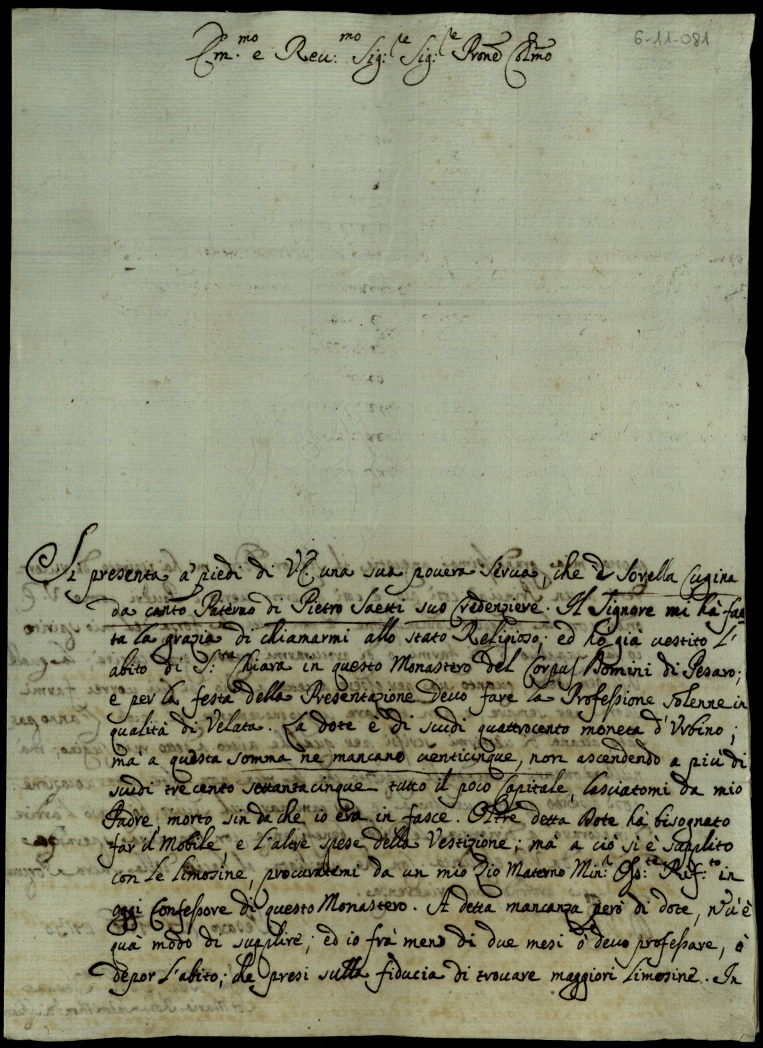 6-11-081
Em.mo e Reu:mo Sig:re Sig:re Prone Colmo
Si presenta a' piedi di VE una sua pouera Serua, che è Sorella Cugina
da canto Paterno di Pietro Saetti suo Credenziere. Il Signore mi hà fat
ta la grazia di chiamarmi allo stato Religioso; ed hò già uestito l'
abito di S:ta Chiara in questo Monastero del Corpus Domini di Pesaro;
e per la festa della Presentazione deuo fare la Professione solenne in
qualità di Velata. La dote è di scudi quattrocento moneta d'Vrbino;
mà a questa somma ne mancano uenticinque, non ascendendo a più di
scudi trecento settantacinque tutto il poco Capitale, lasciatomi da mio
Padre, morto sin da che io era in fasce. Oltre detta Dote hà bisognato
far il Mobile, e l'altre spese della Vestizione; mà a ciò si è supplito
con le limosine, procuratemi da un mio Zio Materno Min:e Oss:te Rif:to in
oggi Confessore di questo Monastero. A detta mancanza però di dote, n'u'è
quà modo di supplire; ed io frà meno di due mesi ò deuo professare, ò
depor l'abito; che presi sulla fiducia di trouare maggiori limosine. In